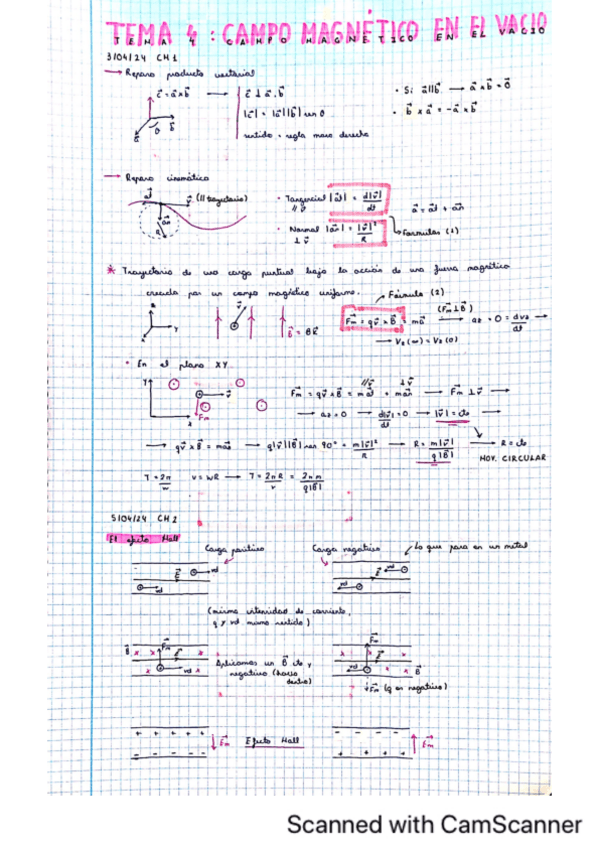 TEMA 4 : CAMPO MAGNÉTICO EN EL VACIO
3/04/24 CH 1
→ Repaso producto vectorial
c⃗ = a⃗ x b⃗ → c⃗ ⊥ a⃗, b⃗
· Si a⃗ // b⃗ → a⃗ x b⃗ = 0⃗
|c⃗| = |a⃗| |b⃗| sen θ
· b⃗ x a⃗ = - a⃗ x b⃗
sentido = regla mano derecha
→ Repaso cinemático
v⃗ (// trayectoria)
· Tangencial |a⃗t| = d|v⃗|/dt
// v⃗
a⃗ = a⃗t + a⃗n
· Normal |a⃗n| = |v⃗|²/R
⊥ v⃗
Fórmulas (1)
* Trayectoria de una carga puntual bajo la acción de una fuerza magnética
creada por un campo magnético uniforme.
Fórmula (2)
B⃗ = Bk⃗
F⃗m = q v⃗ x B⃗ = ma⃗ (F⃗m ⊥ B⃗) → az = 0 = dvz/dt →
→ Vz (∞) = Vz (0)
· En el plano XY
F⃗m = q v⃗ x B⃗ = ma⃗t + ma⃗n → F⃗m ⊥ v⃗ →
→ at = 0 → d|v⃗|/dt = 0 → |v⃗| = cte
→ q v⃗ x B⃗ = ma⃗n → q|v⃗||B⃗| sen 90° = m|v⃗|²/R → R = m|v⃗|/q|B⃗| → R = cte
MOV. CIRCULAR
T = 2π/w v = wR → T = 2πR/v = 2πm/q|B⃗|
5/04/24 CH 2
El efecto Hall
Carga positiva
Carga negativa
Lo que pasa en un metal
(misma intensidad de corriente,
q y vd mismo sentido)
Aplicamos un B⃗ cte y
negativo (hacia
dentro)
F⃗m (q es negativa)
+ + + + +
- - - - -
E⃗m
Efecto Hall
- - - - -
+ + + +
E⃗m
Scanned with CamScanner